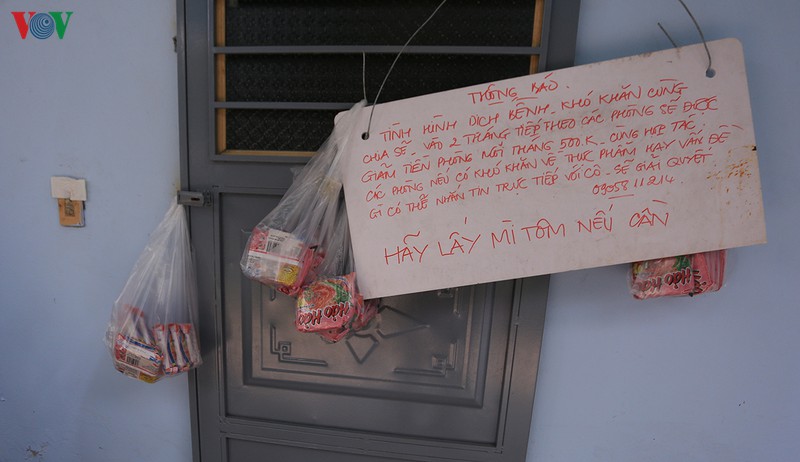 VOV
THÔNG BÁO.
TÌNH HÌNH DỊCH BỆNH - KHÓ KHĂN CÙNG
CHIA SẼ - VÀO 2 THÁNG TIẾP THEO CÁC PHÒNG SẼ ĐƯỢC
GIẢM TIỀN PHÒNG MỖI THÁNG 500.K - CÙNG HỢP TÁC.
CÁC PHÒNG NẾU CÓ KHÓ KHĂN VỀ THỰC PHẨM HAY VẤN ĐỀ
GÌ CÓ THỂ NHẮN TIN TRỰC TIẾP VỚI CÔ - SẼ GIẢI QUYẾT
HÃY LẤY MÌ TÔM NẾU CẦN
Hảo Hảo
Hảo Hảo